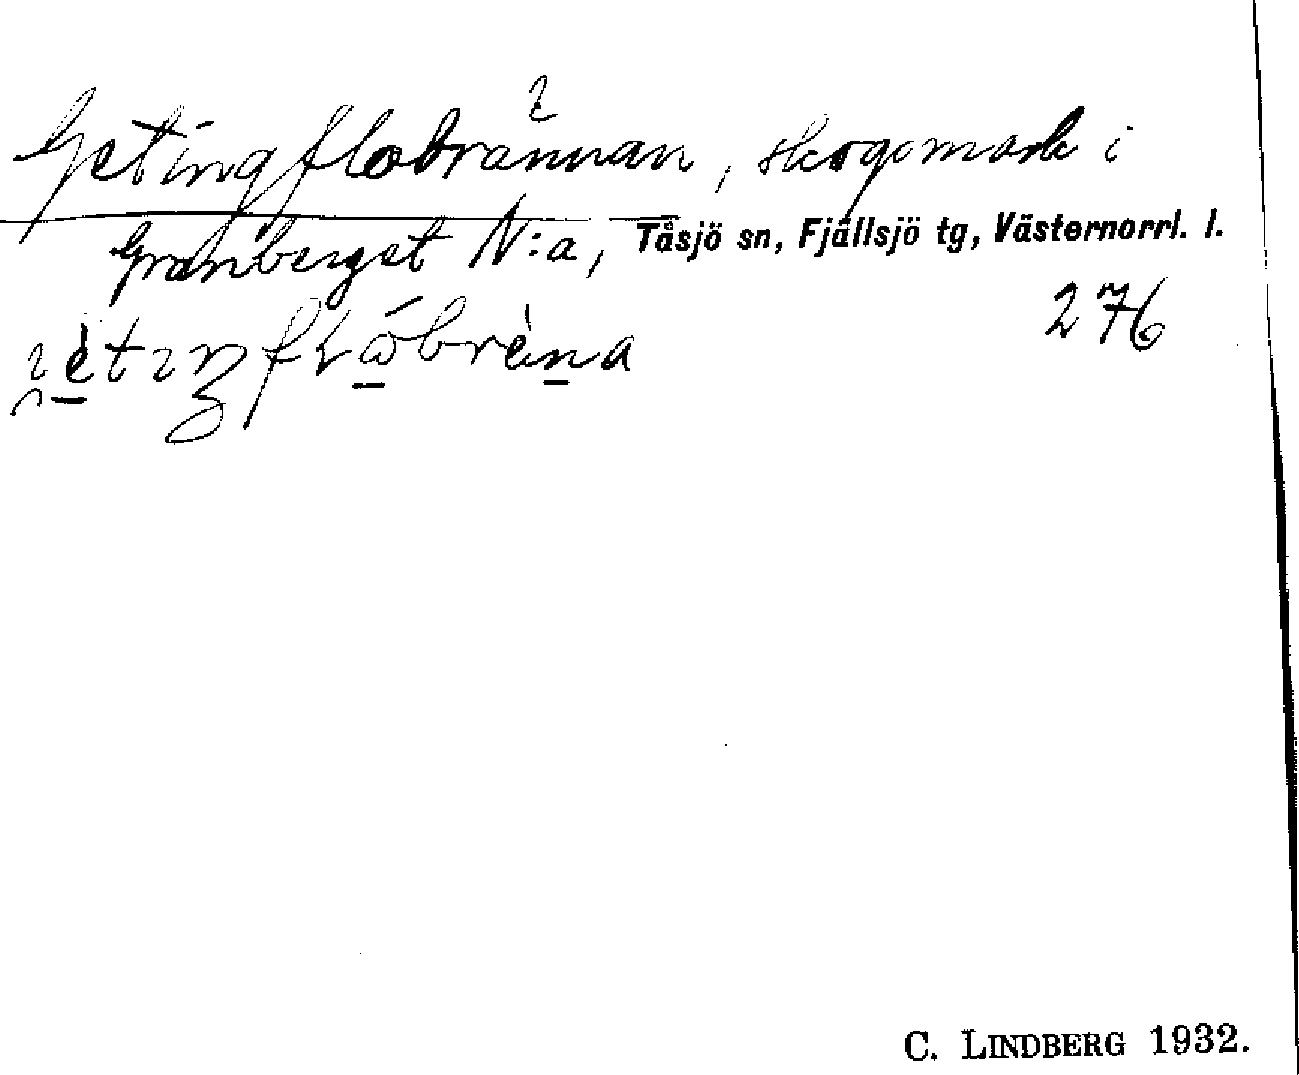 Getingflobrännan, skogsmark i
Granberget N:a, Tåsjö sn, Fjällsjö tg, Västernorrl. l.
276
C. LINDBERG 1932.